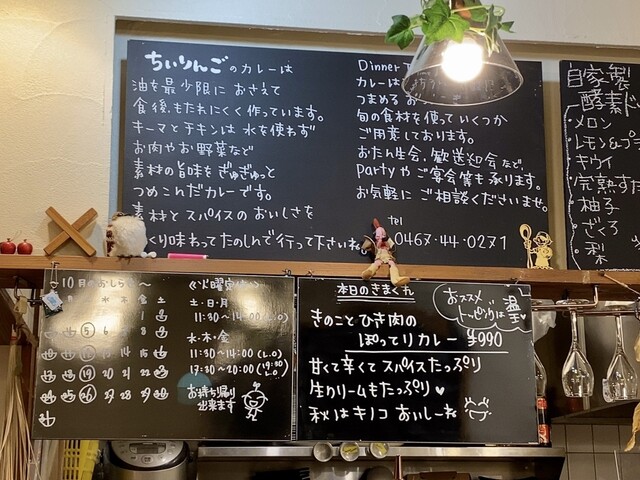 ちぃりんごのカレーは
油を最少限におさえて
食後、もたれにくく作っています。
キーマとチキンは水を使わず
お肉やお野菜など
素材の旨味をぎゅぎゅっと
つめこんだカレーです。
素材とスパイスのおいしさを
くり味わってたのしんで行って下さいね
Dinner
カレーは
つまめる お
旬の食材を使っていくつか
ご用意しております。
おたん生会、歓送迎会など、
Partyやご宴会等も承ります。
お気軽にご相談くださいませ。
tel
0467-44-0271
自家製
酵素ド
メロン
レモン&
キウイ
完熟す
柚子
ざくろ
梨
～10月のおしらせ～
水 木 金 土
<火曜定休>
土・日・月
11:30～14:00(L.O)
水・木・金
11:30～14:00(L.O)
17:30～20:00(19:30 L.O)
お持ち帰り
出来ます
本日のきまぐれ
おススメ
トッピングは
温玉
きのことひき肉の
ぽってりカレー ¥990
甘くて辛くてスパイスたっぷり
生クリームもたっぷり♥
秋はキノコおいしーね